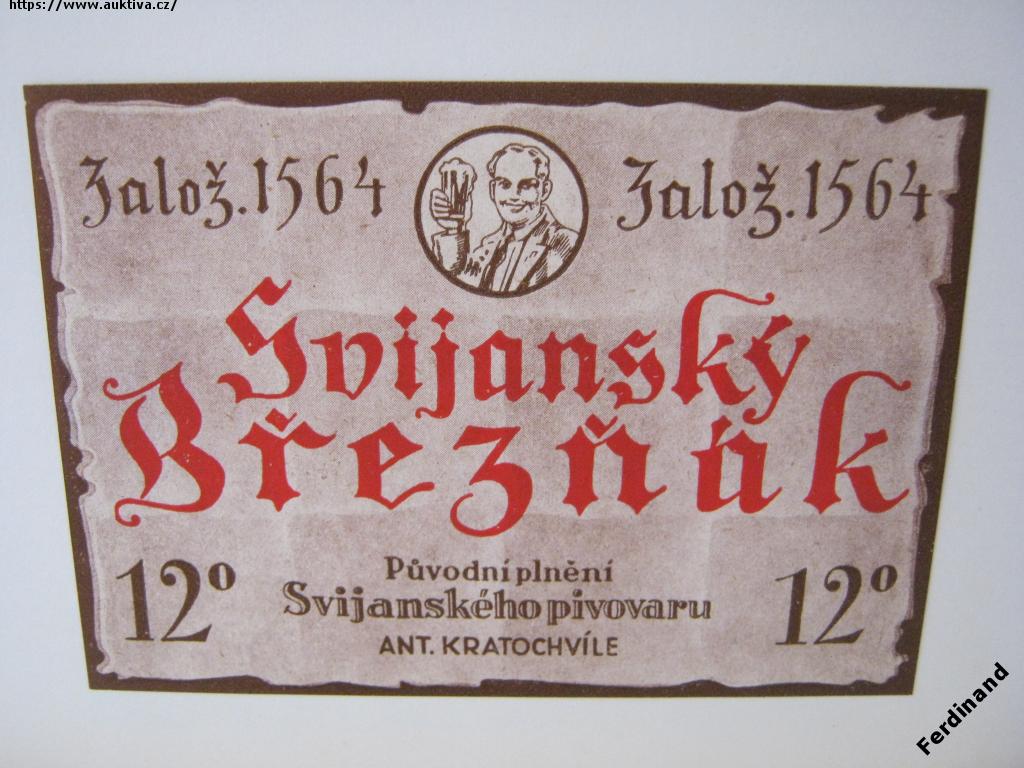 https://www.auktiva.cz/
Založ. 1564
Založ. 1564
Svijanský
Březňák
12°
Původní plnění
Svijanského pivovaru
ANT. KRATOCHVÍLE
12°
Ferdinand